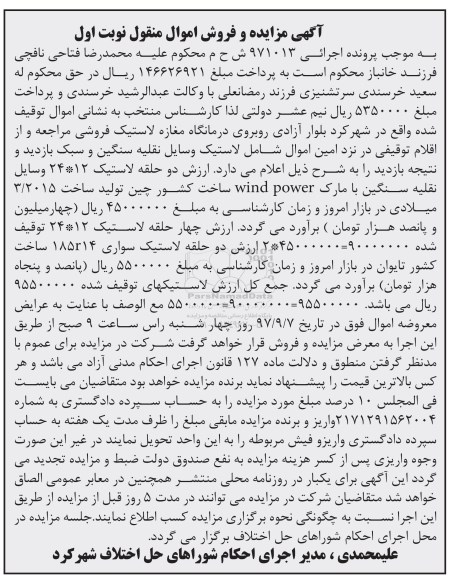 آگهی مزایده و فروش اموال منقول نوبت اول
به موجب پرونده اجرائی ۹۷۱۰۱۳ ش ح م محکوم علیه محمدرضا فتاحی نافچی
فرزند خانباز محکوم است به پرداخت مبلغ ۱۴۶۶۲۶۹۲۱ ریال در حق محکوم له
سعید خرسندی سرتشنیزی فرزند رمضانعلی با وکالت عبدالرشید خرسندی و پرداخت
مبلغ ۵۳۵۰۰۰۰ ریال نیم عشر دولتی لذا کارشناس منتخب به نشانی اموال توقیف
شده واقع در شهرکرد بلوار آزادی روبروی درمانگاه مغازه لاستیک فروشی مراجعه و از
اقلام توقیفی در نزد امین اموال شامل لاستیک وسایل نقلیه سنگین و سبک بازدید و
نتیجه بازدید را به شرح ذیل اعلام می دارد. ارزش دو حلقه لاستیک ۱۲*۲۴ وسایل
نقلیه سنگین با مارک wind power ساخت کشور چین تولید ساخت ۳/۲۰۱۵
میلادی در بازار امروز و زمان کارشناسی به مبلغ ۴۵۰۰۰۰۰۰ ریال (چهارمیلیون
و پانصد هزار تومان ) برآورد می گردد. ارزش چهار حلقه لاستیک ۱۲*۲۴ توقیف
شده ۹۰۰۰۰۰۰۰=۴۵۰۰۰۰۰۰*۲ ارزش دو حلقه لاستیک سواری ۱۸۵r۱۴ ساخت
کشور تایوان در بازار امروز و زمان کارشناسی به مبلغ ۵۵۰۰۰۰۰ ریال (پانصد و پنجاه
هزار تومان) برآورد می گردد. جمع کل ارزش لاستیکهای توقیف شده ۹۵۵۰۰۰۰۰
ریال می باشد. ۹۵۵۰۰۰۰۰=۹۰۰۰۰۰۰۰+۵۵۰۰۰۰۰ مع الوصف با عنایت به عرایض
معروضه اموال فوق در تاریخ ۹۷/۹/۷ روز چهار شنبه راس ساعت ۹ صبح از طریق
این اجرا به معرض مزایده و فروش قرار خواهد گرفت شرکت در مزایده برای عموم با
مدنظر گرفتن منطوق و دلالت ماده ۱۲۷ قانون اجرای احکام مدنی آزاد می باشد و هر
کس بالاترین قیمت را پیشنهاد نماید برنده مزایده خواهد بود متقاضیان می بایست
فی المجلس ۱۰ درصد مبلغ مورد مزایده را به حساب سپرده دادگستری به شماره
۲۱۷۱۲۹۱۵۶۲۰۰۴واریز و برنده مزایده مابقی مبلغ را ظرف مدت یک هفته به حساب
سپرده دادگستری واریزو فیش مربوطه را به این واحد تحویل نمایند در غیر این صورت
وجوه واریزی پس از کسر هزینه مزایده به نفع صندوق دولت ضبط و مزایده تجدید می
گردد این آگهی برای یکبار در روزنامه محلی منتشر همچنین در معابر عمومی الصاق
خواهد شد متقاضیان شرکت در مزایده می توانند در مدت ۵ روز قبل از مزایده از طریق
این اجرا نسبت به چگونگی نحوه برگزاری مزایده کسب اطلاع نمایند.جلسه مزایده در
محل اجرای احکام شوراهای حل اختلاف برگزار می گردد.
علیمحمدی ، مدیر اجرای احکام شوراهای حل اختلاف شهرکرد
ParsNamadData